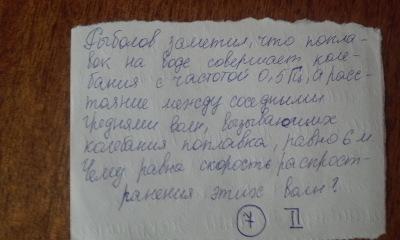 Рыболов заметил, что попла-
вок на воде совершает коле-
бания с частотой 0,5 Гц, а расс-
тояние между соседними
гребнями волн, вызывающих
колебания поплавка, равно 6 м
Чему равна скорость распрост-
ранения этих волн?
7 II